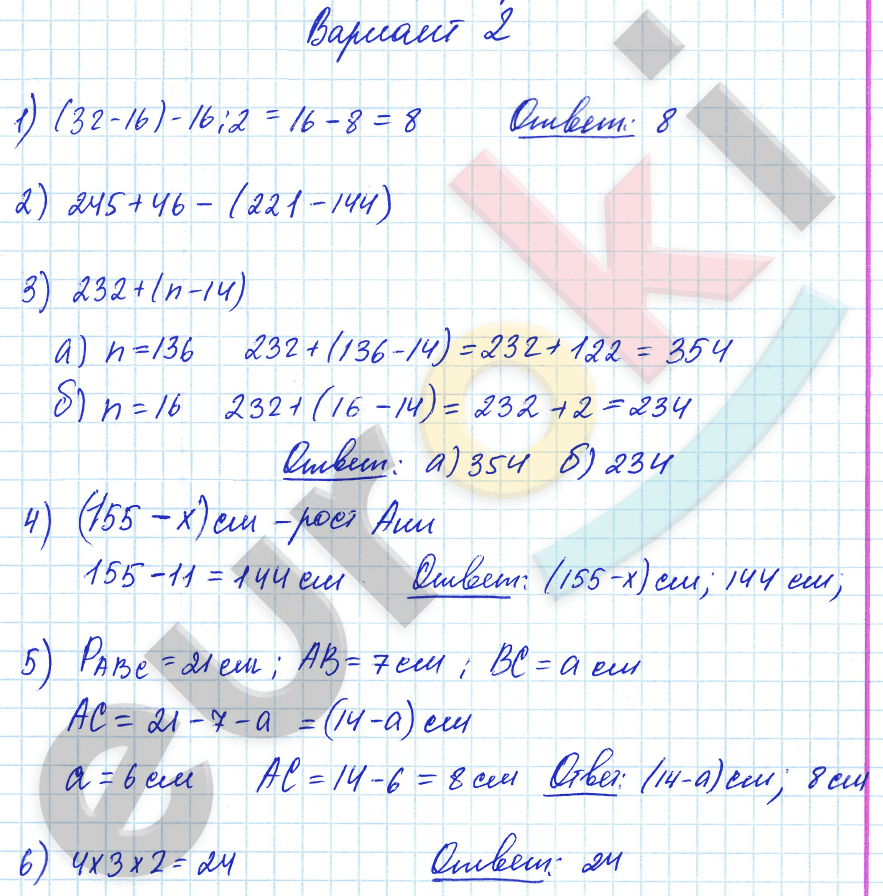 Вариант 2
1) (32-16)-16:2 = 16-8 = 8 Ответ: 8
2) 245+46-(221-144)
3) 232+(n-14)
а) n=136 232+(136-14)=232+122=354
б) n=16 232+(16-14)=232+2=234
Ответ: а) 354 б) 234
4) (155-x) см - рост Ани
155-11=144 см Ответ: (155-x) см; 144 см;
5) PABC=21 см; AB=7 см; BC=a см
AC=21-7-a =(14-a) см
a=6 см AC=14-6=8 см Ответ: (14-a) см; 8 см
6) 4x3x2=24 Ответ: 24
euroki